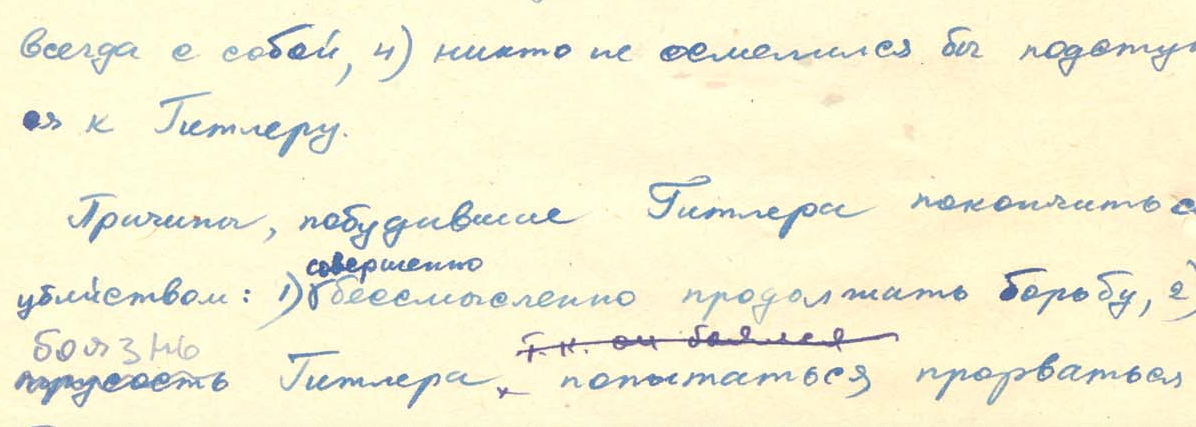 всегда с собой, 4) никто не осмелился бы подступ
ся к Гитлеру.
Причины, побудившие Гитлера покончить с
совершенно
убийством: 1) бессмысленно продолжать борьбу, 2)
боязнь т.к. он боялся
трусость Гитлера попытаться прорваться